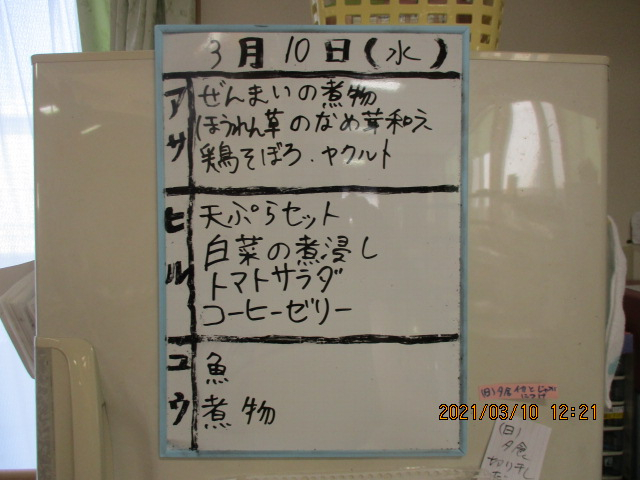 3月10日(水)
アサ
ぜんまいの煮物
ほうれん草のなめ茸和え
鶏そぼろ.ヤクルト
ヒル
天ぷらセット
白菜の煮浸し
トマトサラダ
コーヒーゼリー
ユウ
魚
煮物
2021/03/10 12:21
(日)
夕食
切り干し